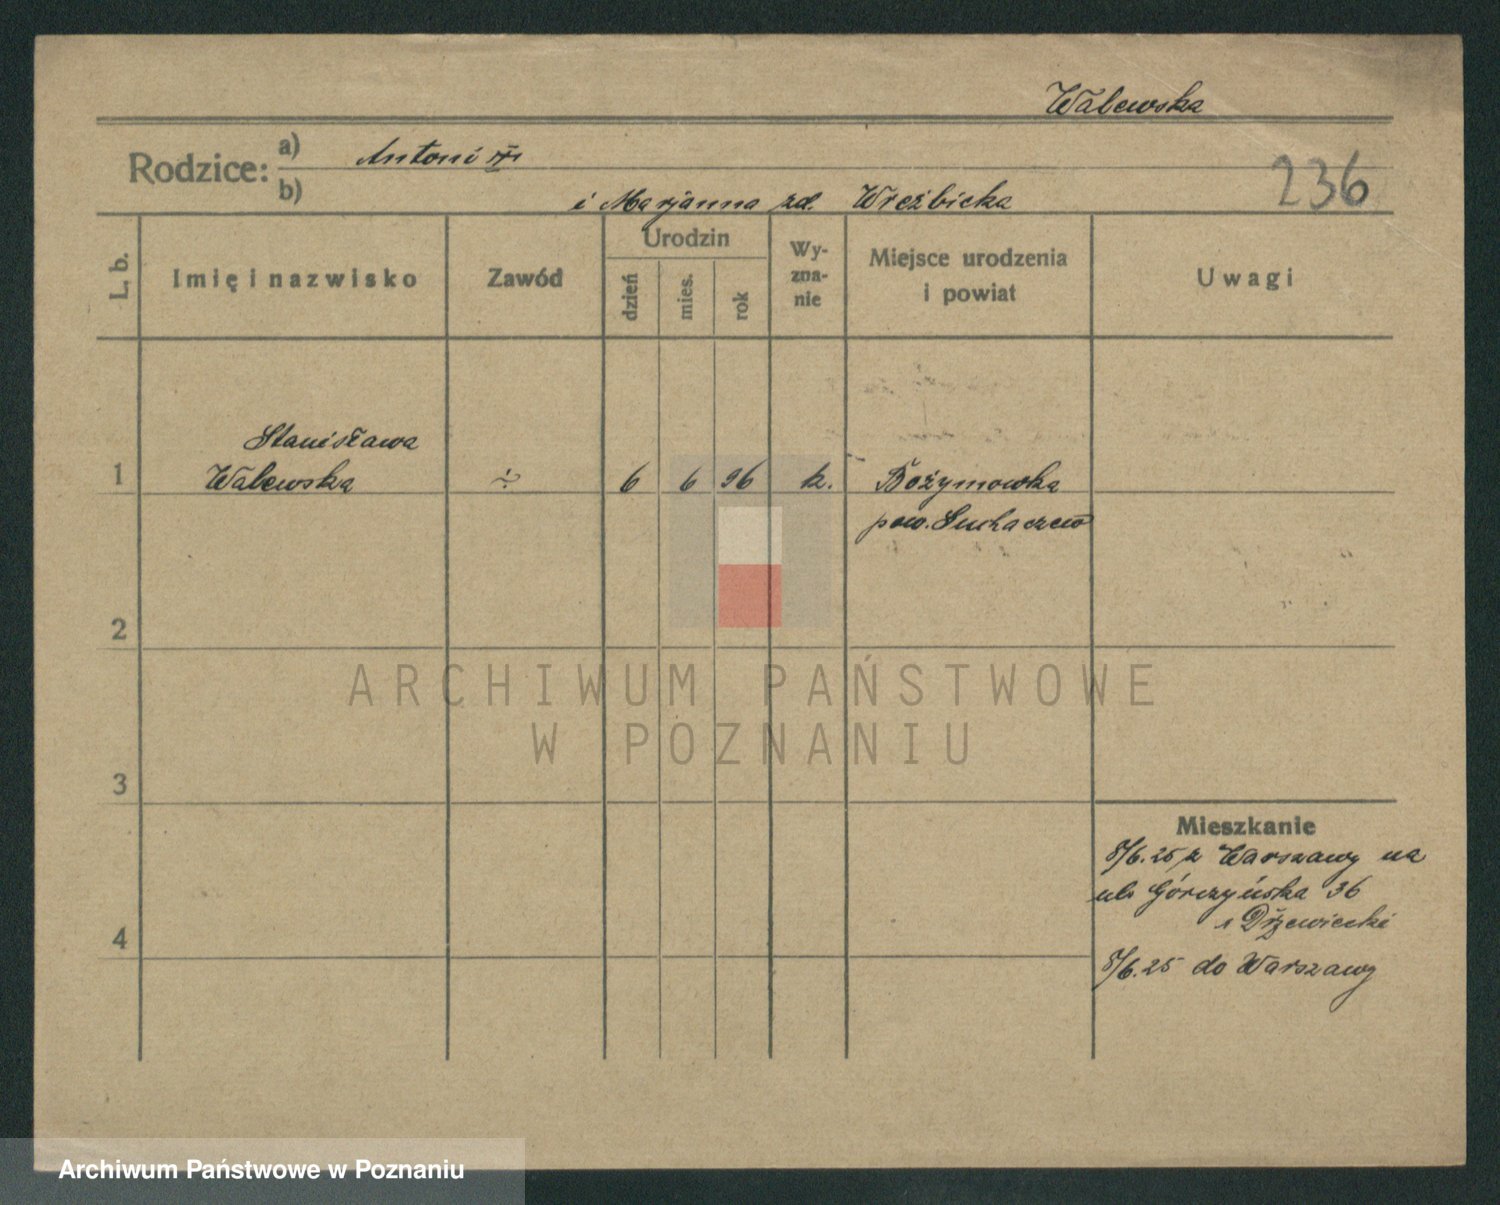 Walewska
Rodzice:
a) Antoni
b) i Marjanna zd. Wreźbicka
236
L. b.
Imię i nazwisko
Zawód
Urodzin
dzień
mies.
rok
Wy-
zna-
nie
Miejsce urodzenia
i powiat
Uwagi
Stanisława
1 Walewska ÷ 6 6 96 k. Bożymowska
pow. Suchaczew
2
3
4
Mieszkanie
8/6.25 z Warszawy na
ul. Górczyńska 36
Drzewiecki
8/6.25 do Warszawy
ARCHIWUM PAŃSTWOWE
W POZNANIU
Archiwum Państwowe w Poznaniu